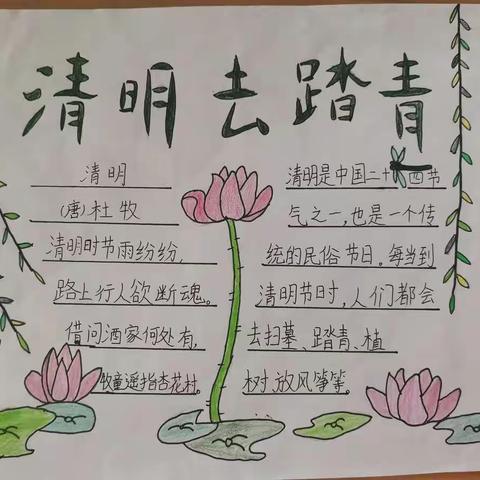 清明去踏青
清明
(唐)杜牧
清明时节雨纷纷,
路上行人欲断魂。
借问酒家何处有,
牧童遥指杏花村。
清明是中国二十四节
气之一,也是一个传
统的民俗节日。每当到
清明节时,人们都会
去扫墓、踏青、植
树、放风筝等。